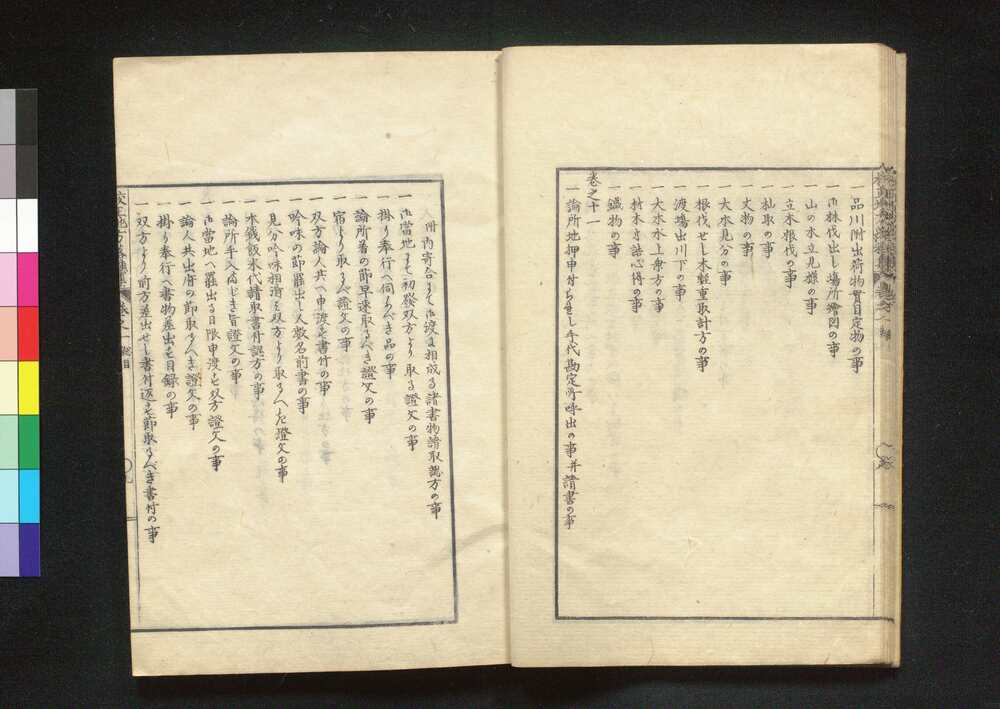 一品川附出荷物貫目定物の事
一御林伐出し場所繪図の事
一山の木立見様の事
一立木根伐の事
一杣取の事
一丈物の事
一大水見分の事
一根伐せし木軽重取計方の事
一渡場出川下の事
一大水水上乗方の事
一材木寸詰心得の事
一織物の事
巻之十一
一論所地押申付られせし手代勘定所呼出の事并請書の事
附内寄合にて御渡に相成る諸書物請取認方の事
一御當地にて初發双方より取る證文の事
一掛り奉行へ伺らべき品の事
一論所着の節早速取るべき證文の事
一宿より取るべ證文の事
一双方論人共へ申渡を書付の事
一吟味の節罷出し人数名前書の事
一見分吟味相済を双方より取るべき證文の事
一木銭飯米代請取書付認方の事
一論所手入ましき旨證文の事
一御當地へ罷出る日限申渡を双方證文の事
一論人共出府の節取るべき證文の事
一掛り奉行へ書物差出を目録の事
一双方より前方差出せし書付返を節取るべき書付の事